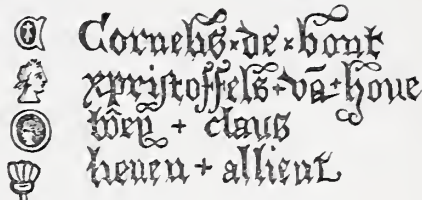 Cornelis × de × bont
xpristoffels + vā + hove
wēy + claus
heven + allient